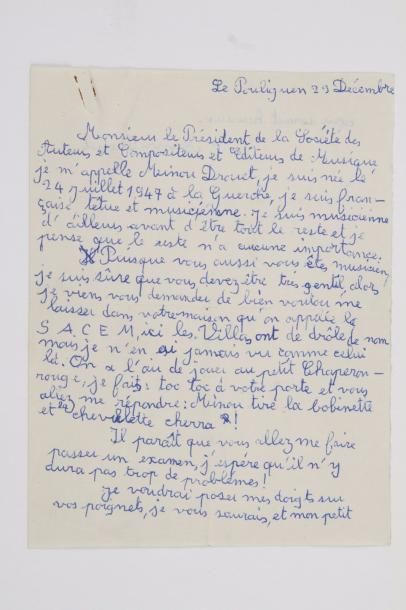 Le Pouliguen 29 Décembre
Monsieur le Président de la Société des
Auteurs et Compositeurs et Editeurs de Musique
je m'appelle Minou Drouet, je suis née le
24 Juillet 1947 à la Guerche, je suis fran-
çaise têtue et musicienne. Je suis musicienne
d'ailleurs avant d'être tout le reste et je
pense que le reste n'a aucune importance.
Puisque vous aussi vous êtes musicien,
je suis sûre que vous devez être très gentil alors
je viens vous demander de bien vouloir me
laisser dans votre maison qu'on appelle la
S A C E M, ici les Villas ont de drôle de nom
mais je n'en ai jamais vu comme celui
là. On a l'au de jouer au petit Chaperon-
rouge, je fais: toc toc à votre porte et vous
allez me répondre: Minou tire la bobinette
et la chevillette cherra!
Il paraît que vous allez me faire
passer un examen, j'espère qu'il n'y
aura pas trop de problèmes!
je voudrai poser mes doigts sur
vos poignets, je vous saurais, et mon petit